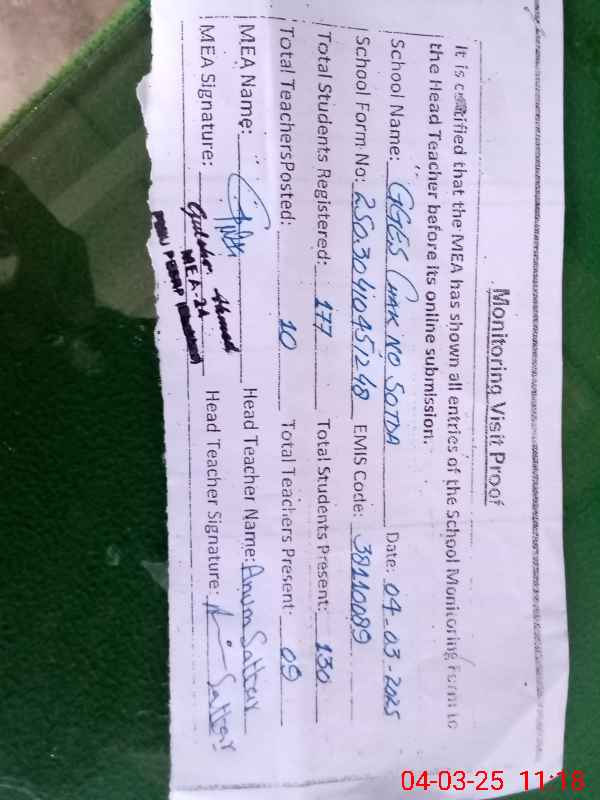 Monitoring Visit Proof
It is certified that the MEA has shown all entries of the School Monitoring Form to
the Head Teacher before its online submission.
School Name: GGES Chak No 50TDA Date: 04-03-2025
School Form No: 25030410451248 EMIS Code: 38110089
Total Students Registered: 177 Total Students Present: 130
Total TeachersPosted: 10 Total Teachers Present: 09
MEA Name: Head Teacher Name: Anum Sattar
MEA Signature: Head Teacher Signature: Sattar
MEA-24
04-03-25 11:18